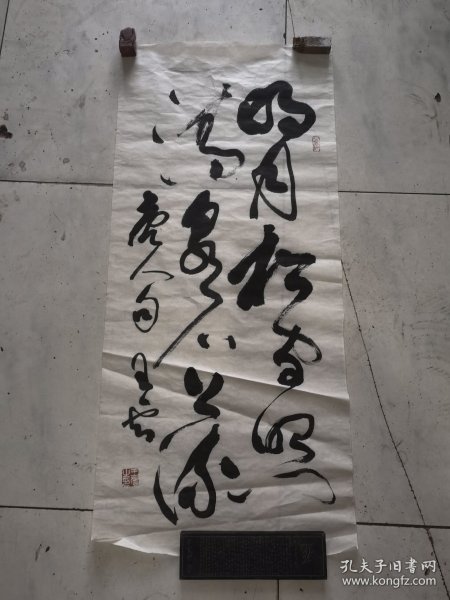 明月松间照
清泉石上流
唐人句 王
孔夫子旧书网
www.kongfz.com